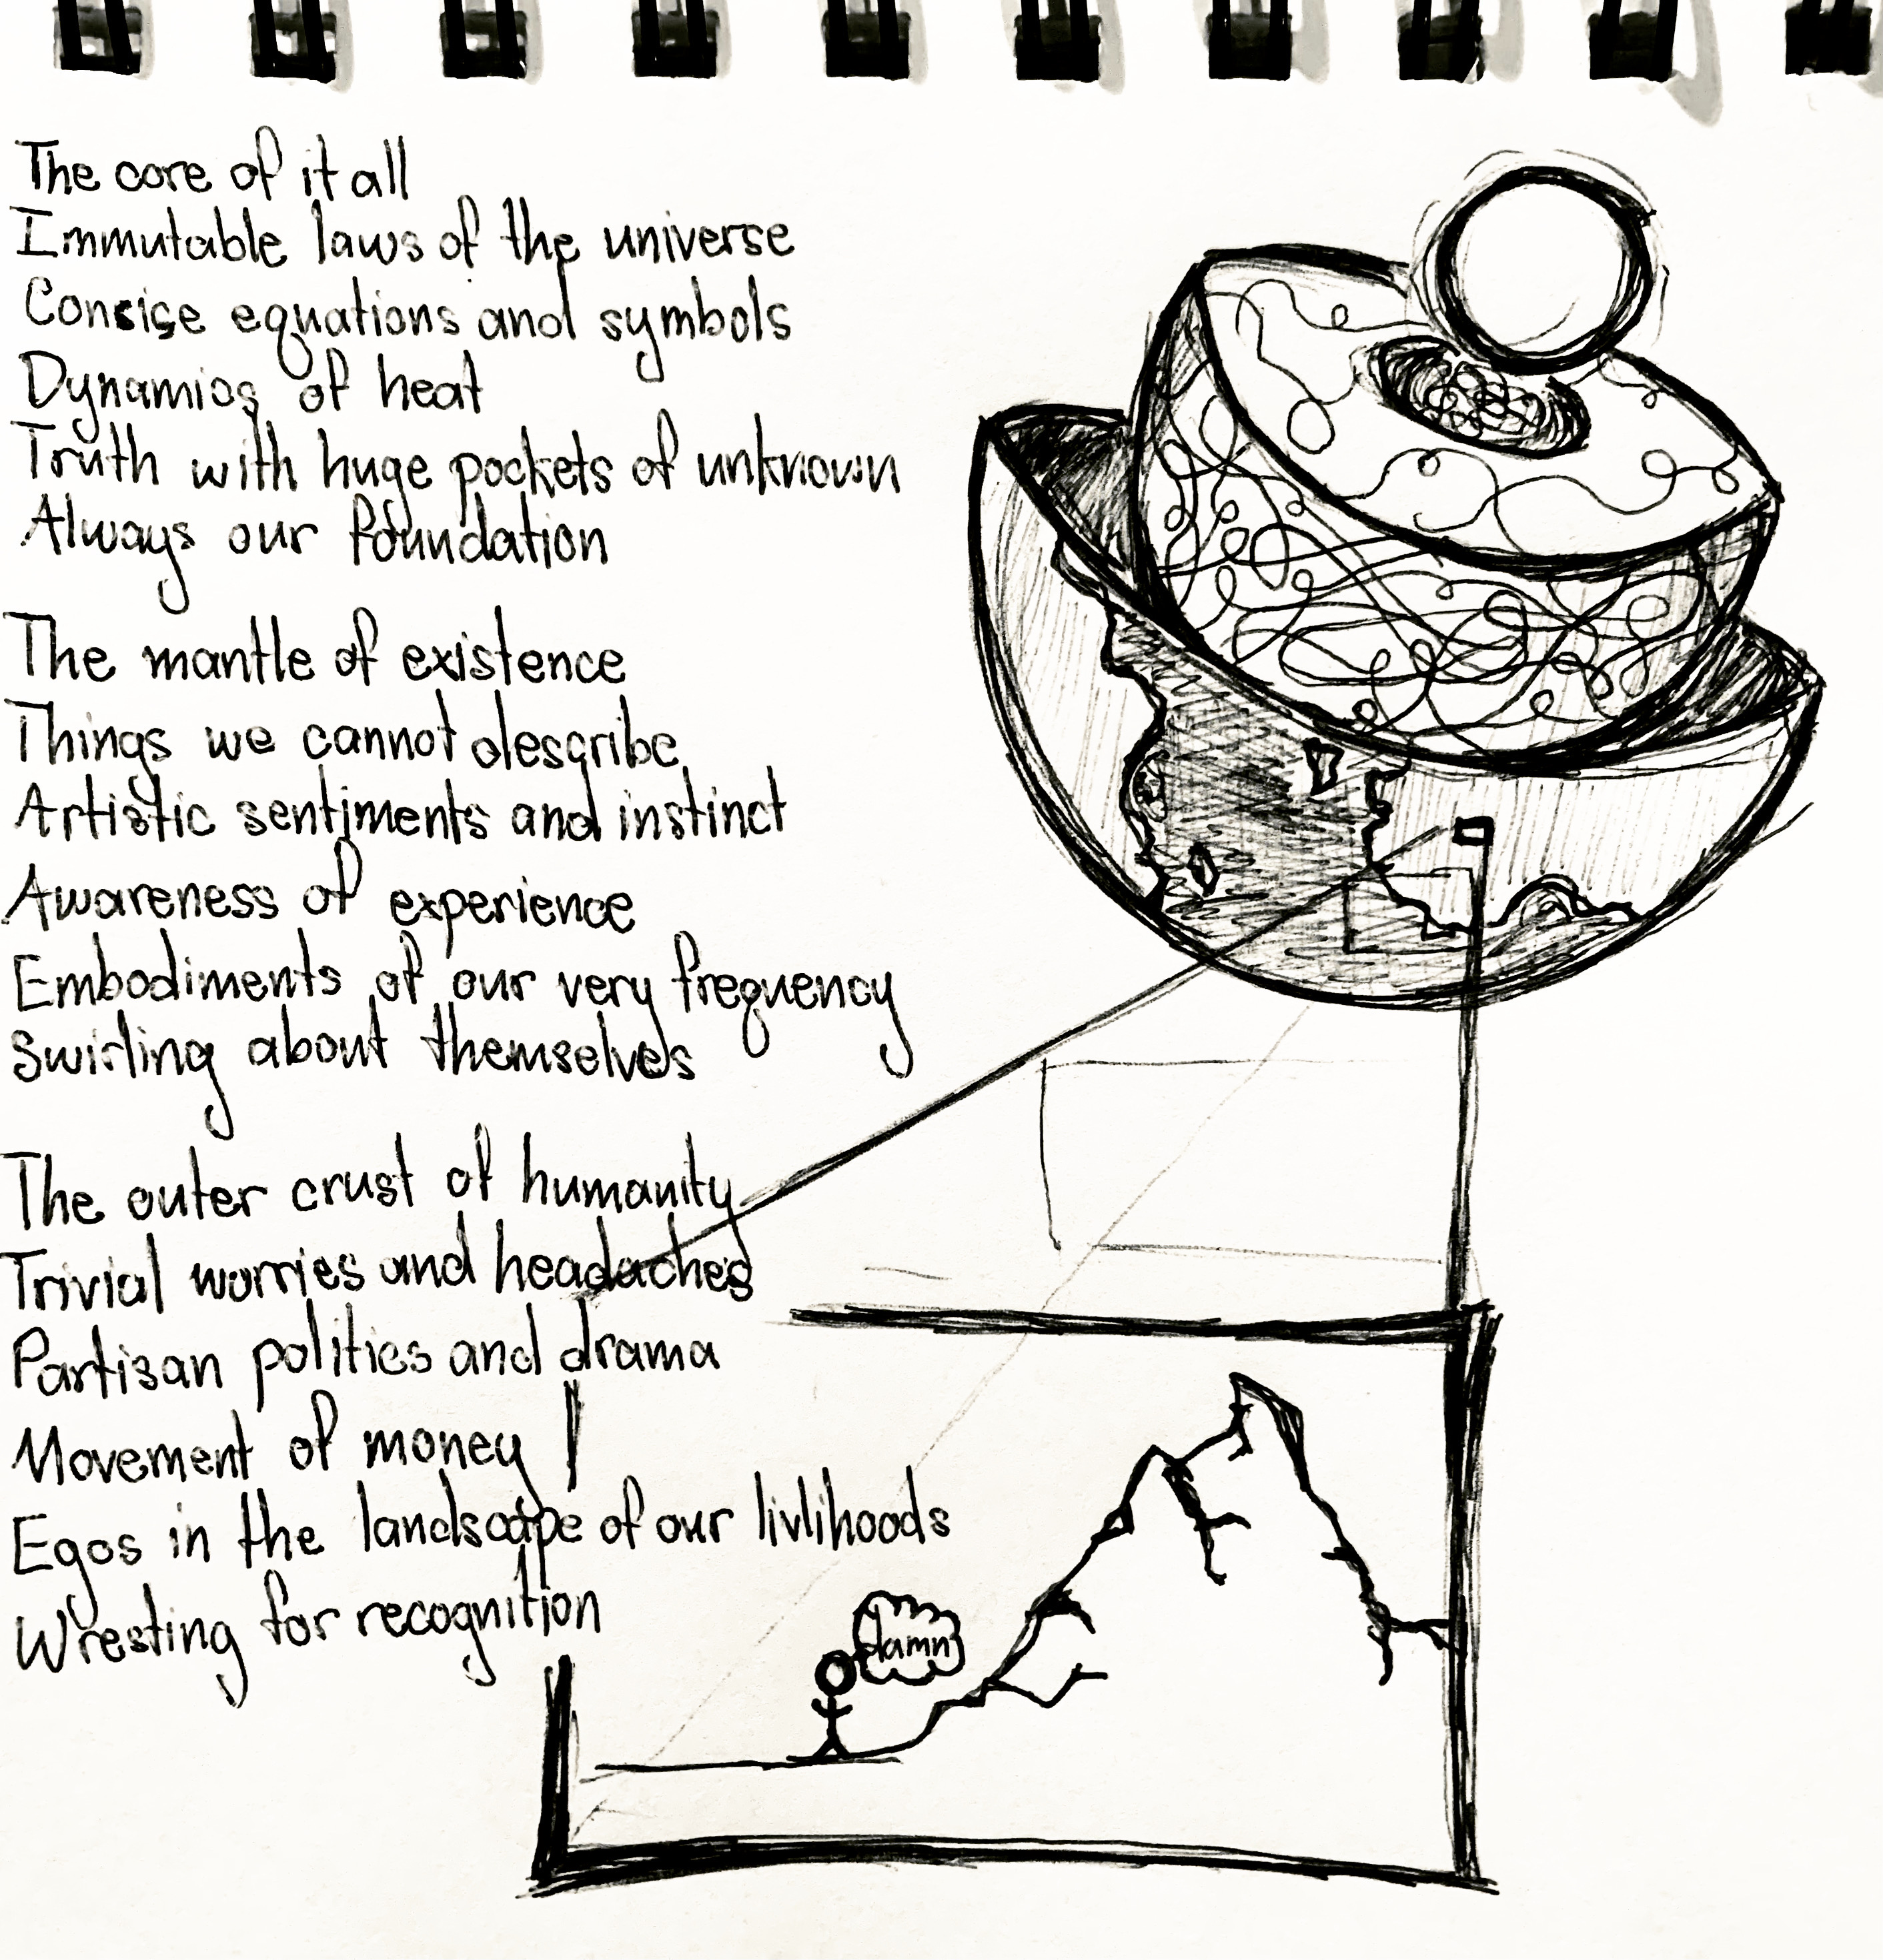 The core of it all
Immutable laws of the universe
Concise equations and symbols
Dynamics of heat
Truth with huge pockets of unknown
Always our foundation
The mantle of existence
Things we cannot describe
Artistic sentiments and instinct
Awareness of experience
Embodiments of our very frequency
Swirling about themselves
The outer crust of humanity
Trivial worries and headaches
Partisan politics and drama
Movement of money
Egos in the landscape of our livlihoods
Wresting for recognition
damn